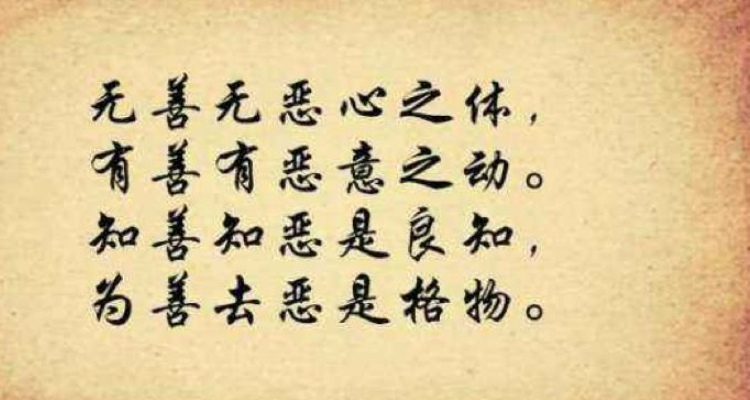 无善无恶心之体,
有善有恶意之动。
知善知恶是良知,
为善去恶是格物。